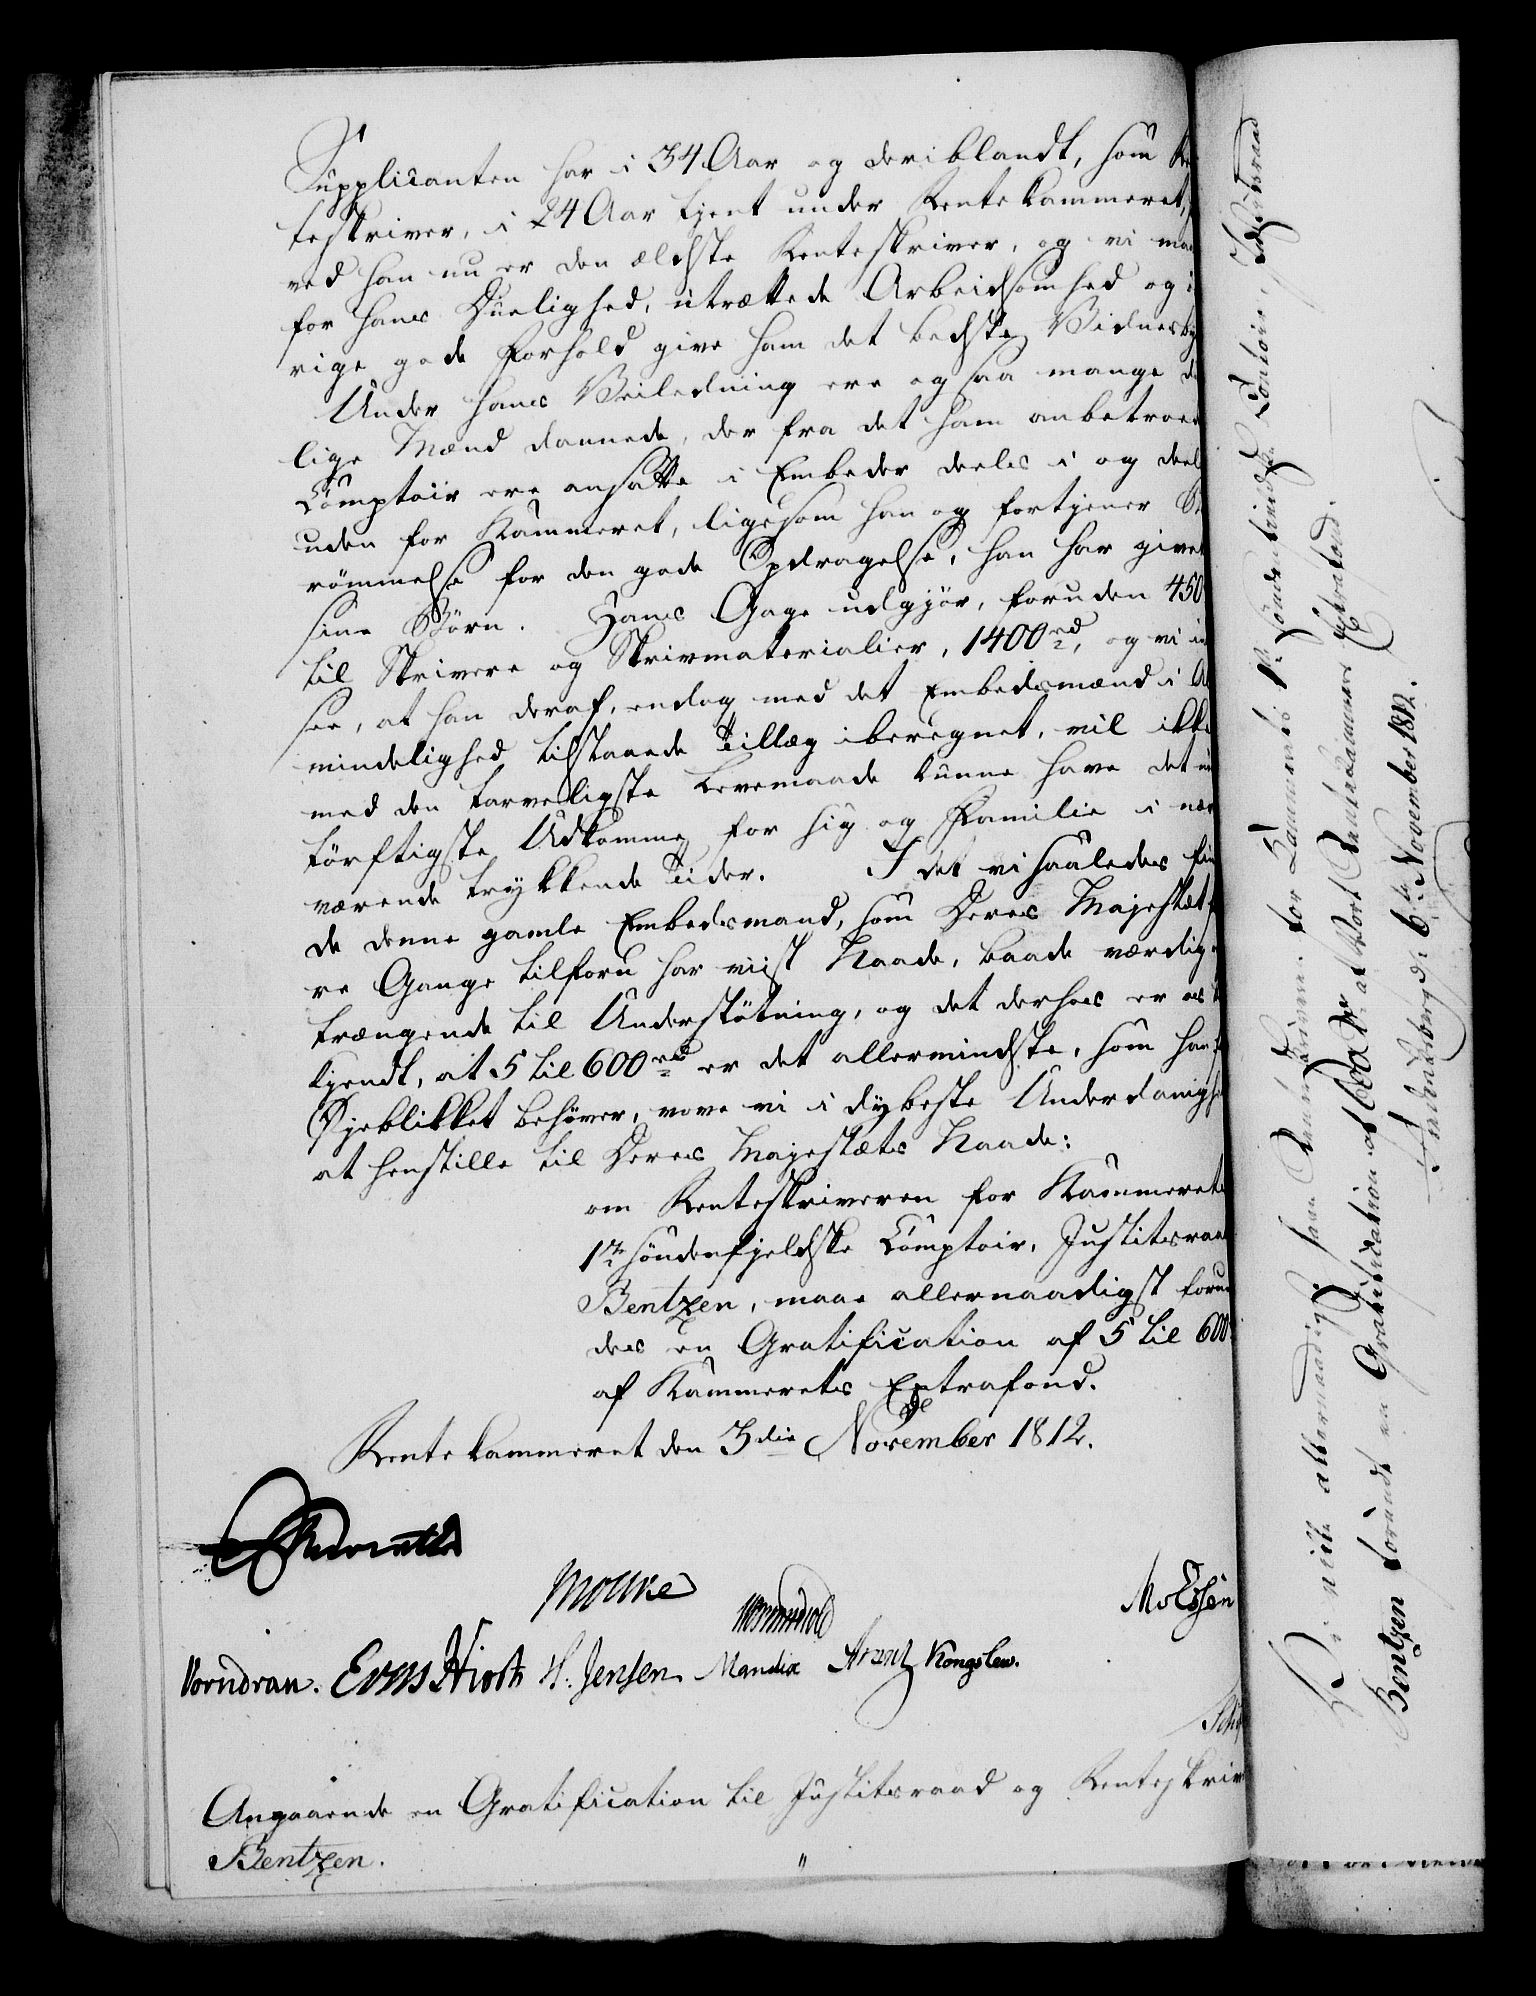 Supplicanten har i 34 Aar og deriblandt, som Re
teskriver, i 24 Aar tjent under Rentekammeret,
ved han nu er den ældste Renteskriver, og vi maa
for hans Duelighed, utrættede Arbeidsomhed og ø
rige gode Forhold give ham det bedste Vidnesby
Under hans Veiledning ere ogsaa mange du
lige Mænd dannede, der fra det ham anbetroed
Comptoir ere ansatte i Embeder deels i og deel
uden for Kammeret, ligesom han og fortjener Be
römmelse for den gode Opdragelse, han har givet
sine Börn. Hans Gage udgjör, foruden 450
til Skrivere og Skrivmaterialier, 1400 rd, og vi in
see, at han deraf, endog med det Embedsmænd i Al
mindelighed tilstaaede Tillæg iberegnet, vil ikke
med den tarveligste Levemaade kunne have det
törftigste Udkomme for sig og Familie i nær
værende trykkende Tider. I det vi saaledes fin
de denne gamle Embedsmand, som Deres Majestæt
re Gange tilforn har viist Naade, baade værdig
trængende til Understötning, og det derhos er os be
kjendt, at 5 til 600 rd er det allermindste, som han
Öjeblikket behöver, vove vi i dybeste Underdanighe
at henstille til Deres Majestæts Naade:
om Renteskriveren for Kammerets
1ste Söndenfjeldske Comptoir, Justitsraad
Bentzen, maae allernaadigst forun
des en Gratification af 5 til 600
af Kammerets Extrafond.
Rentekammeret den 3die November 1812.
Mourie
Wormskiold
MvEssen
Vorndran. Evers Hirth H: Jensen Mandix Arentz Kongslew.
Angaaende en Gratification til Justitsraad og Renteskriv
Bentzen.
Vi ville allernaadigst have Renteskriveren for Kammerets 1ste Söndenfjeldske Contoir, Justitsraad
Bentzen forundt en Gratification af 600 rd af Vort Rentekammers Extrafond.
Frederiksberg d: 6te November 1812.